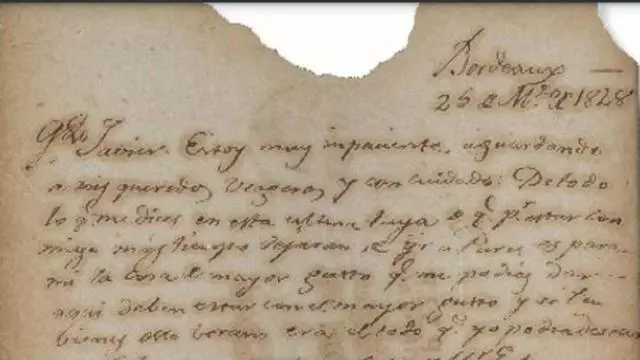 Bordeaux —
26 de Mzo de 1828
Qdo Javier Estoy muy inpaciente, aguardando
a mis queridos Viageros, y con cuidado: De todo
lo q. me dices en esta ultima tuya de q.e p.r estar con
migo mas tiempo dejaran de yr a Paris es para
mi la cosa de mayor gusto q. me podias dar
aqui deben estar con el mayor gusto y si tu
bienes este berano era el todo q.e yo podia desear